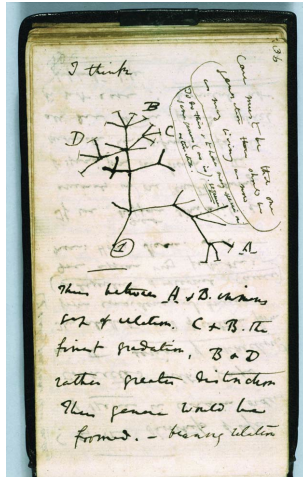 36
I think
Case must be that one
generation then should be
as many living as now
To do this & to have many species in
same genus (as is) requires
extinction
B
D
C
A
1
Thus between A & B. immens
gap of relation. C & B. the
finest gradation, B & D
rather greater distinction
Thus genera would be
formed. — bearing relation